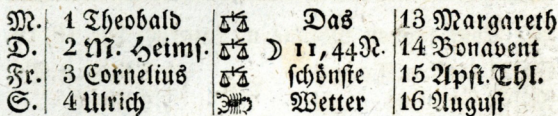 M. 1 Theobald ♎ Das 13 Margareth
D. 2 M. Heims. ♎ ☽ 11, 44N. 14 Bonavent
Fr. 3 Cornelius ♎ schönste 15 Apst. Thl.
S. 4 Ulrich ♏ Wetter 16 August